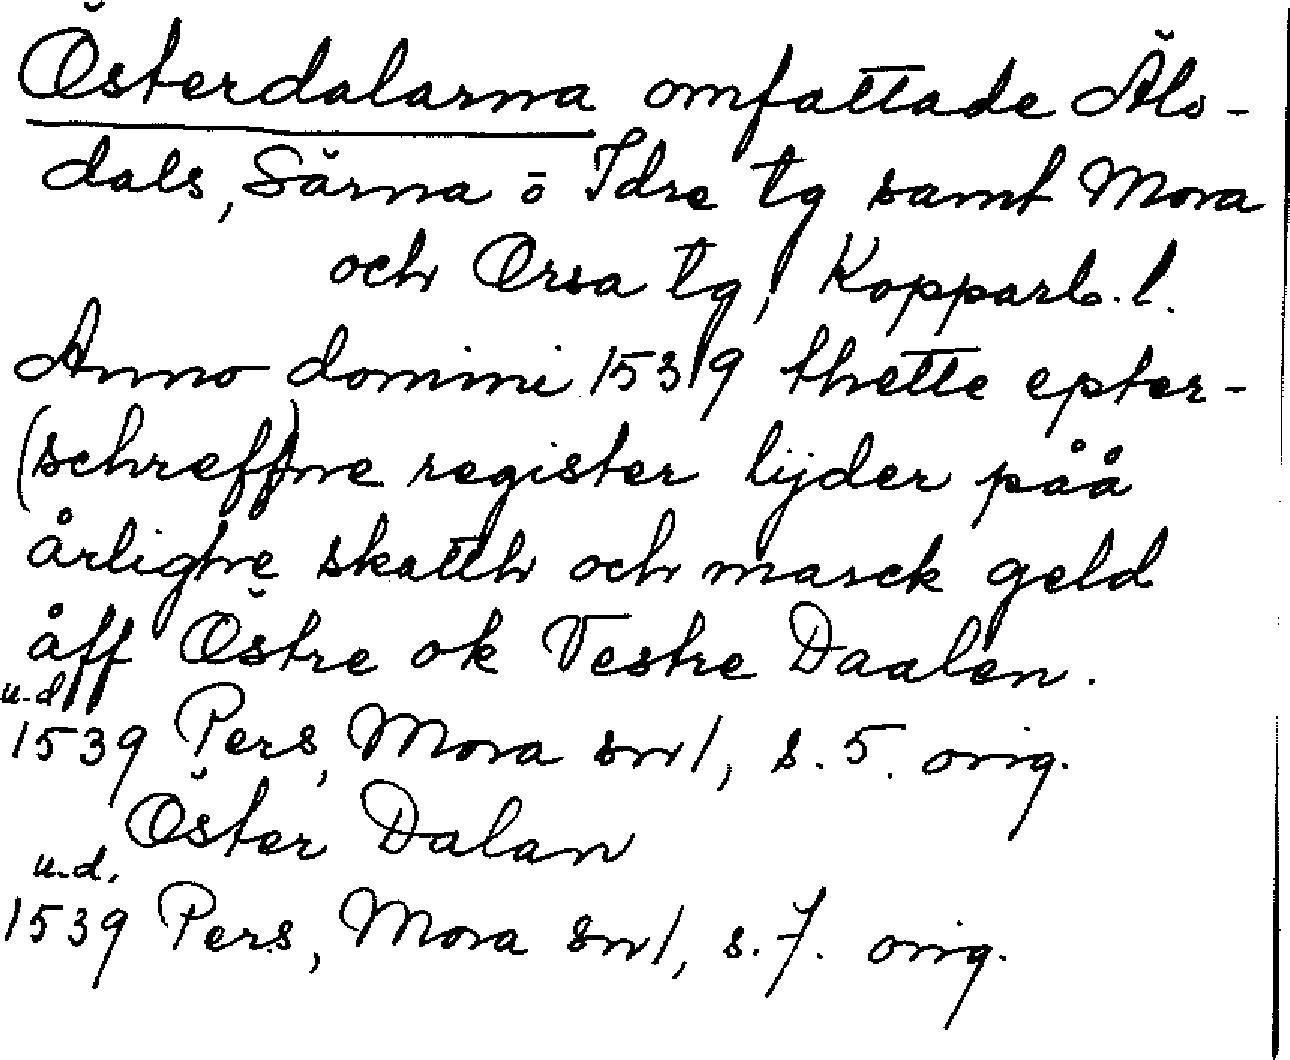 Österdalarna omfattade Älv-
dals, Särna o Idre tg samt Mora
och Orsa tg, Kopparb. l.
Anno domini 1539 thette epter-
(schreff)ne register lijder påå
årlighe skatth och marck geld
åff Östre ok Vestre Daalen.
u.d.
1539 Pers, Mora sml, s. 5. orig.
Öster Dalan
u.d.
1539 Pers, Mora sml, s. 7. orig.